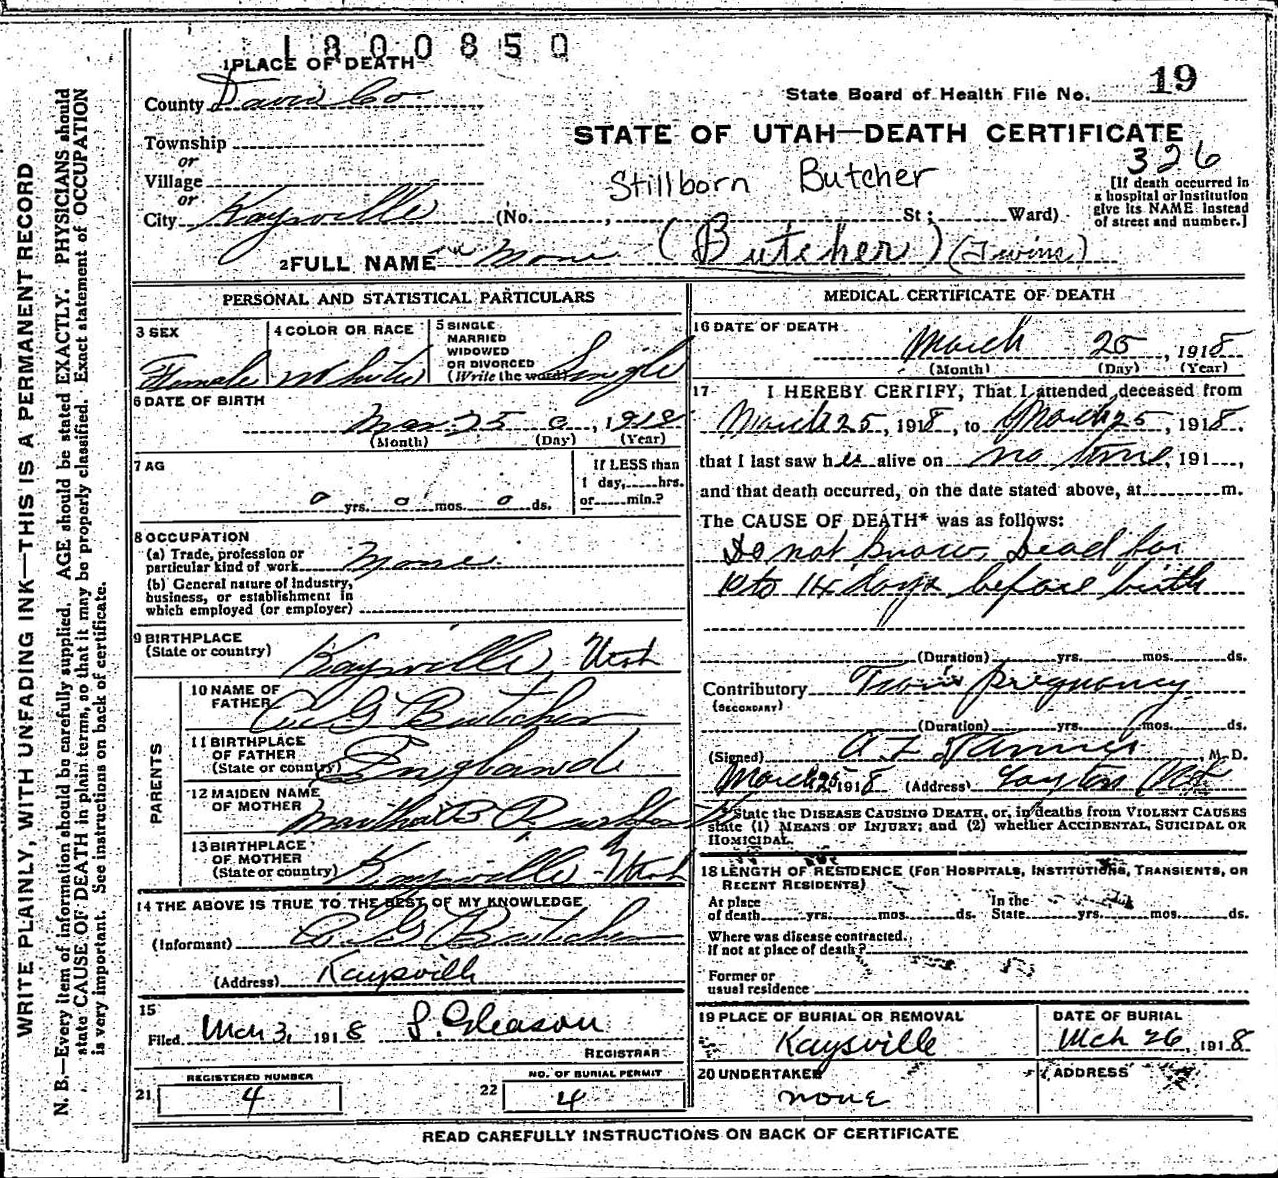 1800850
1 PLACE OF DEATH
19
County Davis Co
State Board of Health File No.
Township
STATE OF UTAH—DEATH CERTIFICATE
or
326
Village
Stillborn Butcher
or
City Kaysville (No. , St ; Ward)
[If death occurred in
a hospital or institution
give its NAME instead
of street and number.]
2 FULL NAME None (Butcher) (Twins)
PERSONAL AND STATISTICAL PARTICULARS
3 SEX
Female
4 COLOR OR RACE
White
5 SINGLE
MARRIED
WIDOWED
OR DIVORCED
(Write the word) Single
6 DATE OF BIRTH
Mar 25 , 1918
(Month) (Day) (Year)
7 AG
0 yrs. 0 mos. 0 ds.
If LESS than
1 day, hrs.
or min.?
8 OCCUPATION
(a) Trade, profession or
particular kind of work None
(b) General nature of industry,
business, or establishment in
which employed (or employer)
9 BIRTHPLACE
(State or country) Kaysville, Utah
PARENTS
10 NAME OF
FATHER G Butcher
11 BIRTHPLACE
OF FATHER
(State or country) England
12 MAIDEN NAME
OF MOTHER Martha B
13 BIRTHPLACE
OF MOTHER
(State or country) Kaysville Utah
14 THE ABOVE IS TRUE TO THE BEST OF MY KNOWLEDGE
(Informant) G Butcher
(Address) Kaysville
15
Filed Mch 3, 1918 S. Gleason
REGISTRAR
REGISTERED NUMBER
21 4
NO. OF BURIAL PERMIT
22 4
MEDICAL CERTIFICATE OF DEATH
16 DATE OF DEATH
March 25 , 1918
(Month) (Day) (Year)
17 I HEREBY CERTIFY, That I attended deceased from
March 25 , 1918, to March 25 , 1918,
that I last saw her alive on no time, 191 ,
and that death occurred, on the date stated above, at m.
The CAUSE OF DEATH* was as follows:
Do not know. Dead for
10 to 14 days before birth
(Duration) yrs. mos. ds.
Contributory Twin pregnancy
(SECONDARY)
(Duration) yrs. mos. ds.
(Signed) M. D.
March 25 1918 (Address) Layton
* State the DISEASE CAUSING DEATH, or, in deaths from VIOLENT CAUSES
state (1) MEANS OF INJURY; and (2) whether ACCIDENTAL, SUICIDAL OR
HOMICIDAL.
18 LENGTH OF RESIDENCE (FOR HOSPITALS, INSTITUTIONS, TRANSIENTS, OR
RECENT RESIDENTS)
At place
of death yrs. mos. ds.
In the
State yrs. mos. ds.
Where was disease contracted.
If not at place of death?
Former or
usual residence
19 PLACE OF BURIAL OR REMOVAL
Kaysville
DATE OF BURIAL
Mch 26, 1918
20 UNDERTAKER
none
ADDRESS
READ CAREFULLY INSTRUCTIONS ON BACK OF CERTIFICATE
WRITE PLAINLY, WITH UNFADING INK—THIS IS A PERMANENT RECORD
N. B.—Every item of information should be carefully supplied. AGE should be stated EXACTLY. PHYSICIANS should
state CAUSE OF DEATH in plain terms, so that it may be properly classified. Exact statement of OCCUPATION
is very important. See instructions on back of certificate.